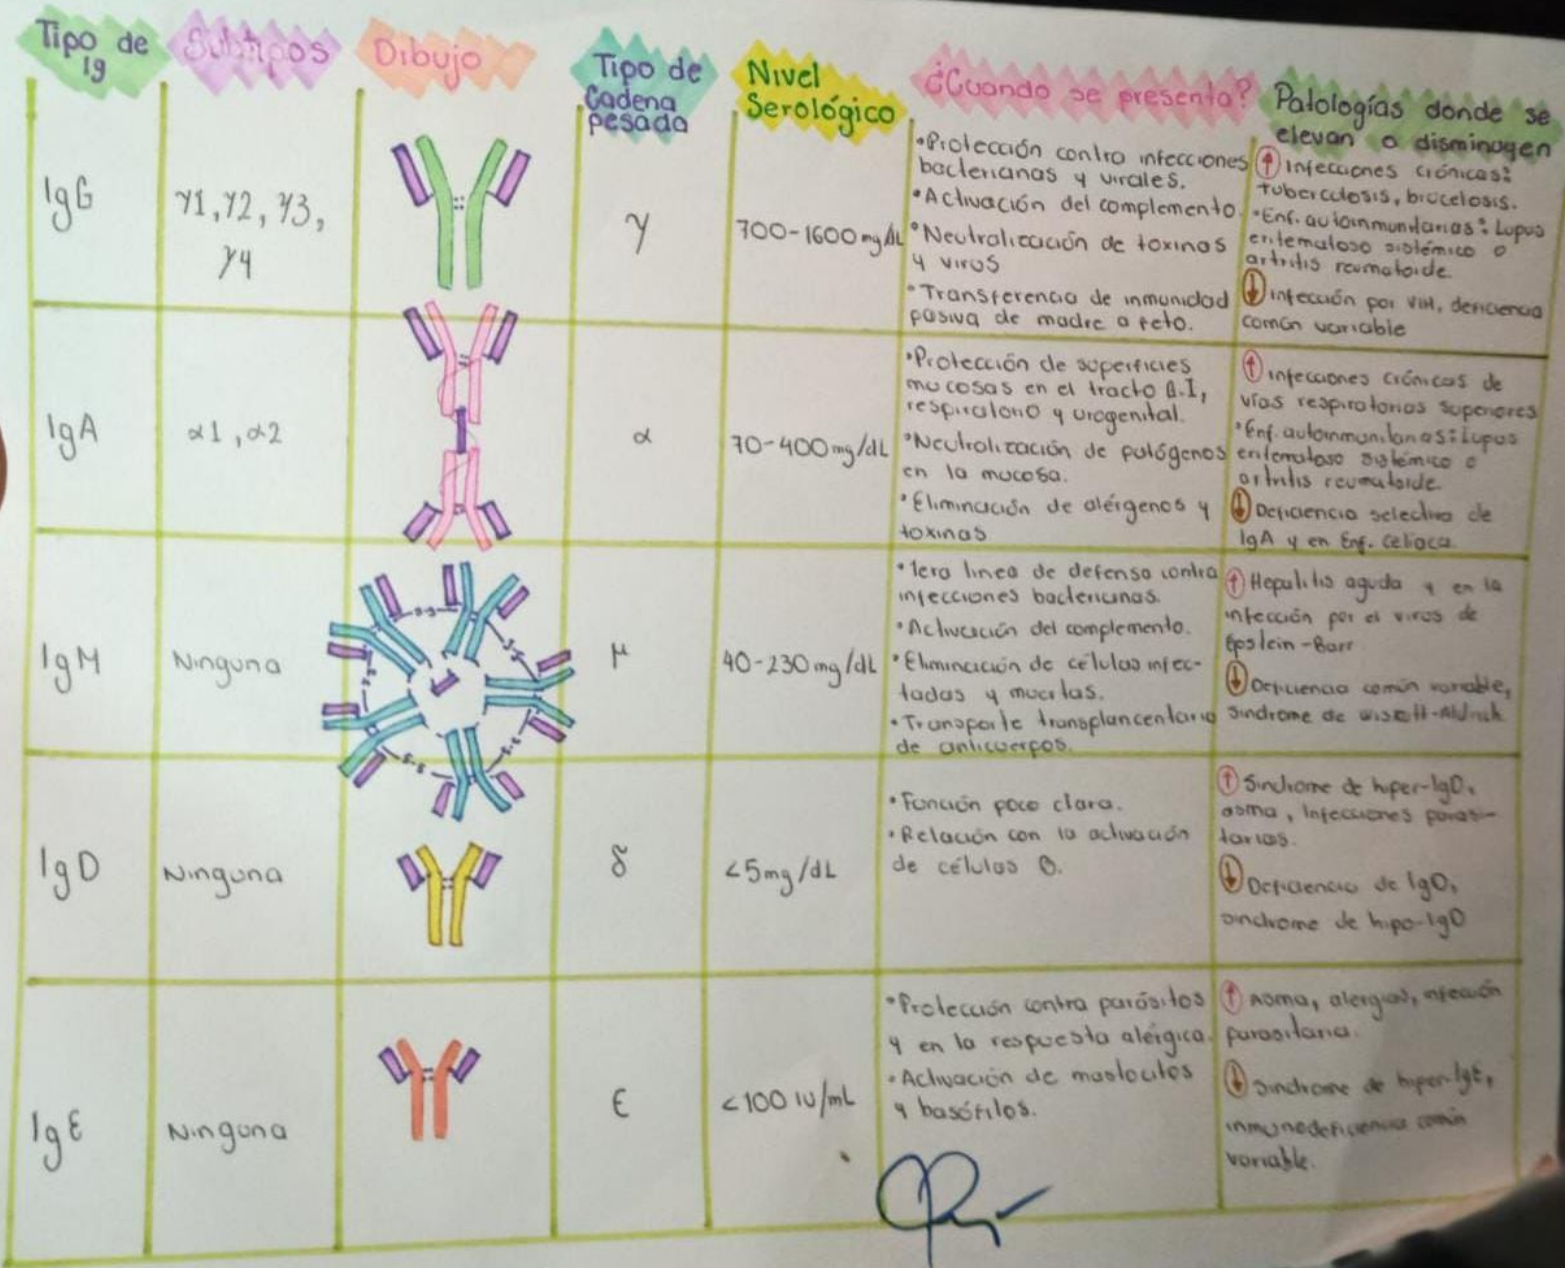 Tipo de
Ig
Subtipos
Dibujo
Tipo de
Cadena
pesada
Nivel
Serológico
¿Cuando se presenta?
Patologías donde se
elevan o disminuyen
IgG
γ1, γ2, γ3,
γ4
γ
700-1600 mg/dL
•Protección contra infecciones
bacterianas y virales.
•Activación del complemento.
•Neutralización de toxinas
y virus
•Transferencia de inmunidad
pasiva de madre a feto.
↑ Infecciones crónicas:
tuberculosis, brucelosis.
•Enf. autoinmunitarias: Lupus
eritematoso sistémico o
artritis reumatoide.
↓ infección por VIH, deficiencia
común variable
IgA
α1, α2
α
70-400 mg/dL
•Protección de superficies
mucosas en el tracto G.I,
respiratorio y urogenital.
•Neutralización de patógenos
en la mucosa.
•Eliminación de alérgenos y
toxinas
↑ infecciones crónicas de
vías respiratorias superiores
•Enf. autoinmunitarias: Lupus
eritematoso sistémico o
artritis reumatoide.
↓ Deficiencia selectiva de
IgA y en Enf. Celiaca.
IgM
Ninguna
μ
40-230 mg/dL
•1era linea de defensa contra
infecciones bacterianas.
•Activación del complemento.
•Eliminación de células infec-
tadas y muertas.
•Transporte transplancentario
de anticuerpos.
↑ Hepatitis aguda y en la
infección por el virus de
Epstein-Barr
↓ Deficiencia común variable,
sindrome de Wiskott-Aldrich
s-s
s-s
s-s
s-s
s-s
IgD
Ninguna
δ
<5mg/dL
•Función poco clara.
•Relación con la activación
de células B.
↑ Sindrome de hiper-IgD,
asma, Infecciones parasi-
tarias.
↓ Deficiencia de IgD,
sindrome de hipo-IgD
IgE
Ninguna
ϵ
<100 IU/mL
•Protección contra parásitos
y en la respuesta alérgica.
•Activación de mastocitos
y basófilos.
↑ Asma, alergias, infección
parasitaria.
↓ Sindrome de hiper-IgE,
inmunodeficiencia común
variable.